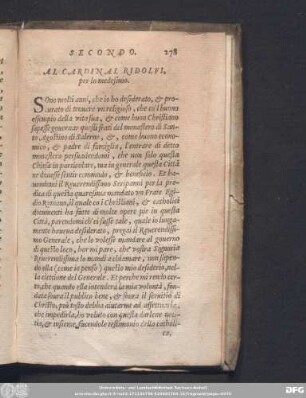 SECONDO. 278
AL CARDINAL RIDOLFI,
per lo medesimo.
SOno molti anni, che io ho desiderato, & pro-
curato di trovare un religioso, che col buono
esempio della vita sua, & come buon Christiano
sapesse governare questi frati del monastero di Santo
Agostino di Salerno, &, come buono econo-
mico, & padre di famiglia, l'entrate di detto
monastero
che non solo questa
Chiesa in particolare, ma in generale questa Città
ne traesse frutto commodo, & beneficio. Et ha-
vendomi il Reverendissimo Seripanni per la pre-
dica di questa quaresima mandato un Frate Egi-
dio Romano, il quale co i Christiani, & catholici
documenti ha fatte di molte opere pie in questa
Città, parendomi ch'ei fusse tale, quale io longa-
mente haveva desiderato, pregai il Reverendissi-
mo Generale, che lo volesse mandare al governo
di questo loco, hor mi pare, che vostra Signoria
Reverendissima lo mandi a chiamare, non sapen-
do ella (come io penso) questo mio desiderio, nè
la elettione del Generale. Et perche mi rendo cer-
to, che quando ella intenderà la mia volontà, fon-
data sovra il publico bene, & sovra il servitio di
Christo, più tosto debba aiutarmi ad
che impedirlo, ho voluto con questa darlene no-
tia, & insieme, facendole testimonio della catholi-
ca,